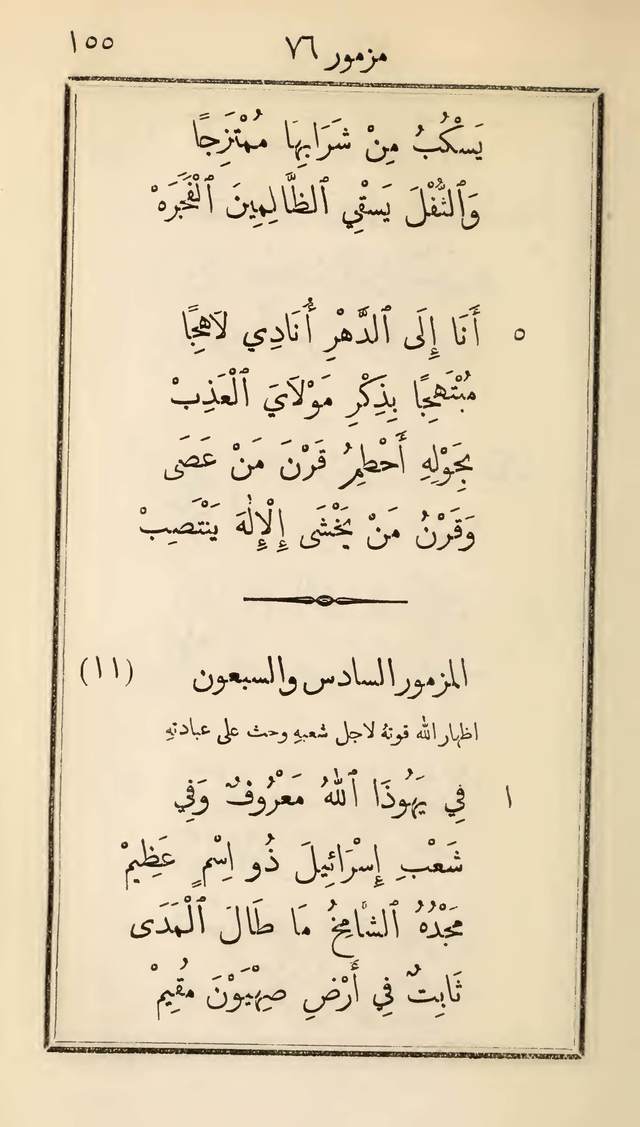 مزمور ٧٦ ١٥٥
يَسْكُبُ مِنْ شَرَابِهَا مُمْتَزِجًا
وَٱلثُّفْلَ يَسْقِي ٱلظَّالِمِينَ ٱلْفَجَرَهْ
٥ أَنَا إِلَى ٱلدَّهْرِ أُنَادِي لَاهِجًا
مُبْتَهِجًا بِذِكْرِ مَوْلَايَ ٱلْعَذِبْ
بِحَوْلِهِ أَحْطِمُ قَرْنَ مَنْ عَصَى
وَقَرْنُ مَنْ يَخْشَى ٱلْإِلٰهَ يَنْتَصِبْ
المزمور السادس والسبعون (١١)
اظهار الله قوتهُ لاجل شعبهِ وحث على عبادتهِ
١ فِي يَهُوذَا ٱللهُ مَعْرُوفٌ وَفِي
شَعْبِ إِسْرَائِيلَ ذُو اِسْمٍ عَظِيمْ
مَجْدُهُ ٱلشَّامِخُ مَا طَالَ ٱلْمَدَى
ثَابِتٌ فِي أَرْضِ صِهْيَوْنَ مُقِيمْ